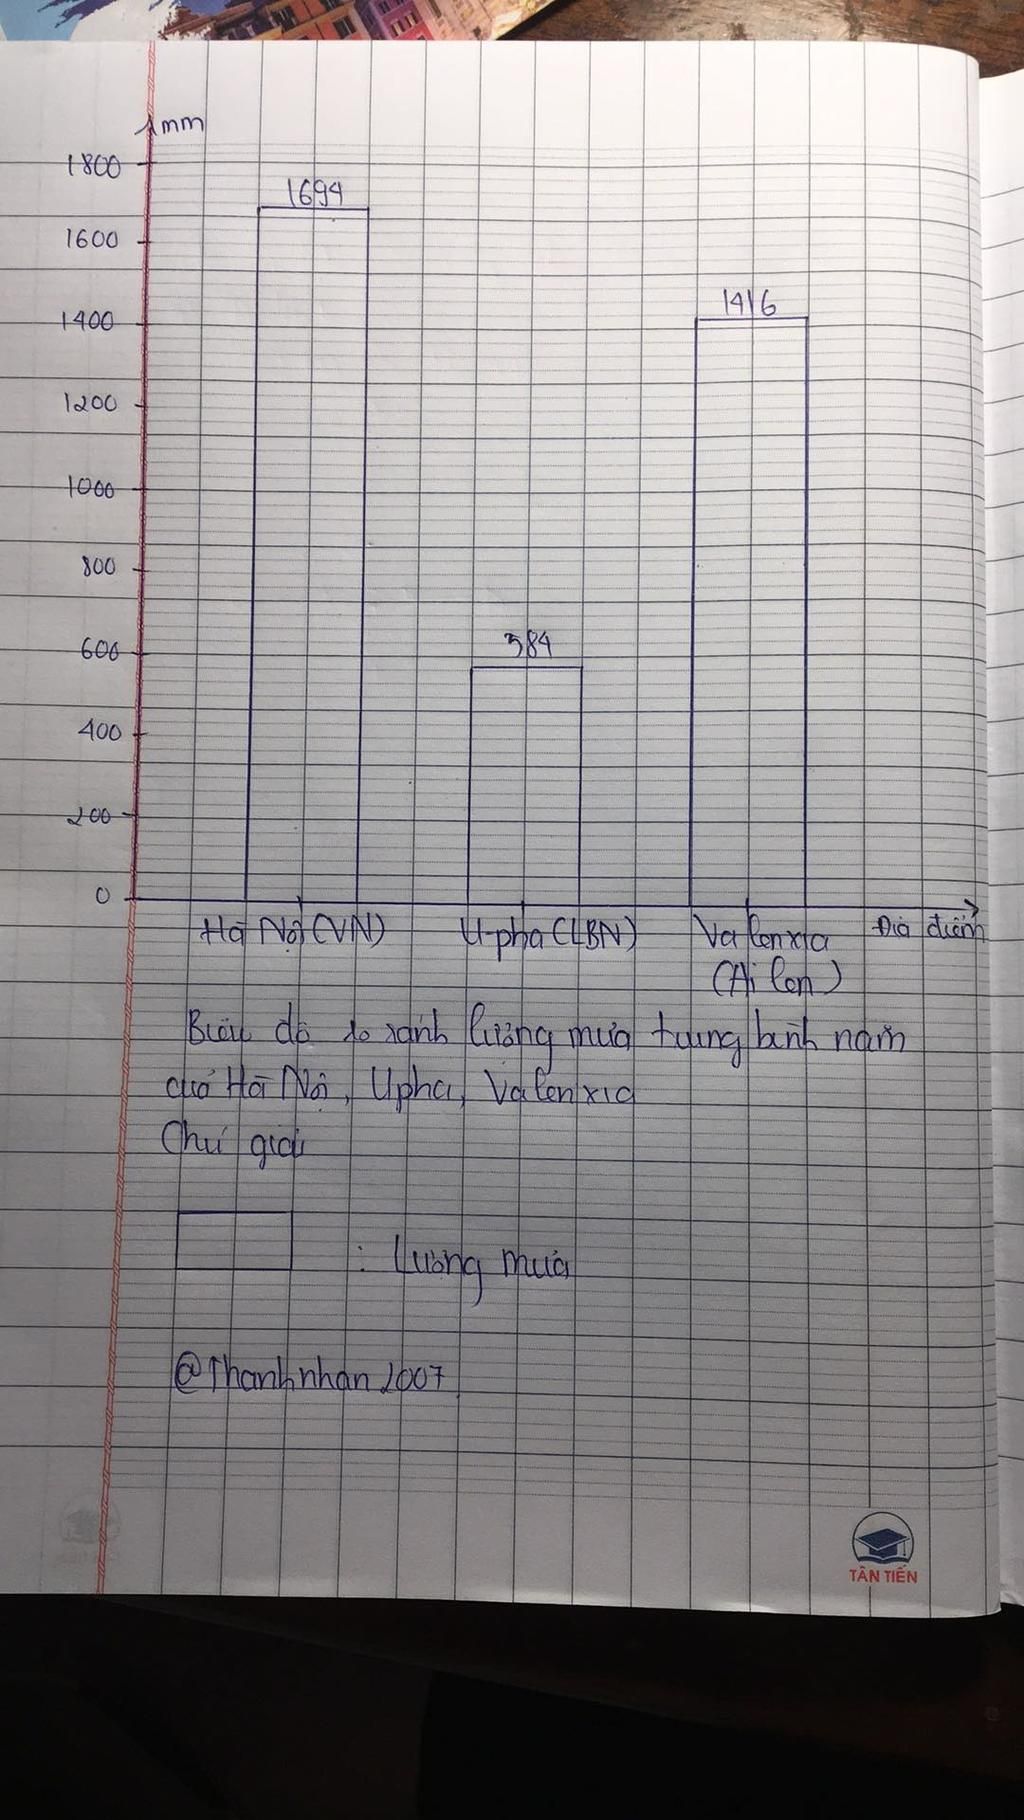 mm
1800
1694
1600
1416
1400
1200
1000
800
600
584
400
200
0
Hà Nội (VN) U-pha (LBN) Valenxia Địa điểm
(Ai len)
Biểu đồ so sánh lượng mưa trung bình năm
của Hà Nội, Upha, Valenxia
Chú giải
: Lượng mưa
@Thanhnhan2007
TÂN TIẾN